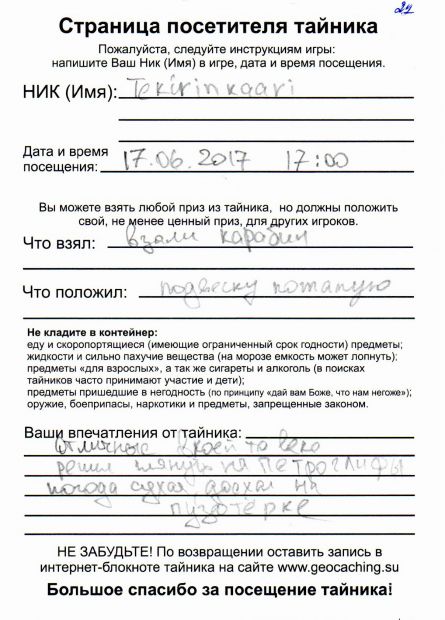 29
Страница посетителя тайника
Пожалуйста, следуйте инструкциям игры:
напишите Ваш Ник (Имя) в игре, дата и время посещения.
НИК (Имя): Tekirinkaari
Дата и время
посещения: 17.06.2017 17:00
Вы можете взять любой приз из тайника, но должны положить
свой, не менее ценный приз, для других игроков.
Что взял: взали карабин
Что положил: подвеску
Не кладите в контейнер:
еду и скоропортящиеся (имеющие ограниченный срок годности) предметы;
жидкости и сильно пахучие вещества (на морозе емкость может лопнуть);
предметы «для взрослых», а так же сигареты и алкоголь (в поисках
тайников часто принимают участие и дети);
предметы пришедшие в негодность (по принципу «дай вам Боже, что нам негоже»);
оружие, боеприпасы, наркотики и предметы, запрещенные законом.
Ваши впечатления от тайника:
Отличные
решил на петроглифы
погода сухая доехал на
пузотерке
НЕ ЗАБУДЬТЕ! По возвращении оставить запись в
интернет-блокноте тайника на сайте www.geocaching.su
Большое спасибо за посещение тайника!